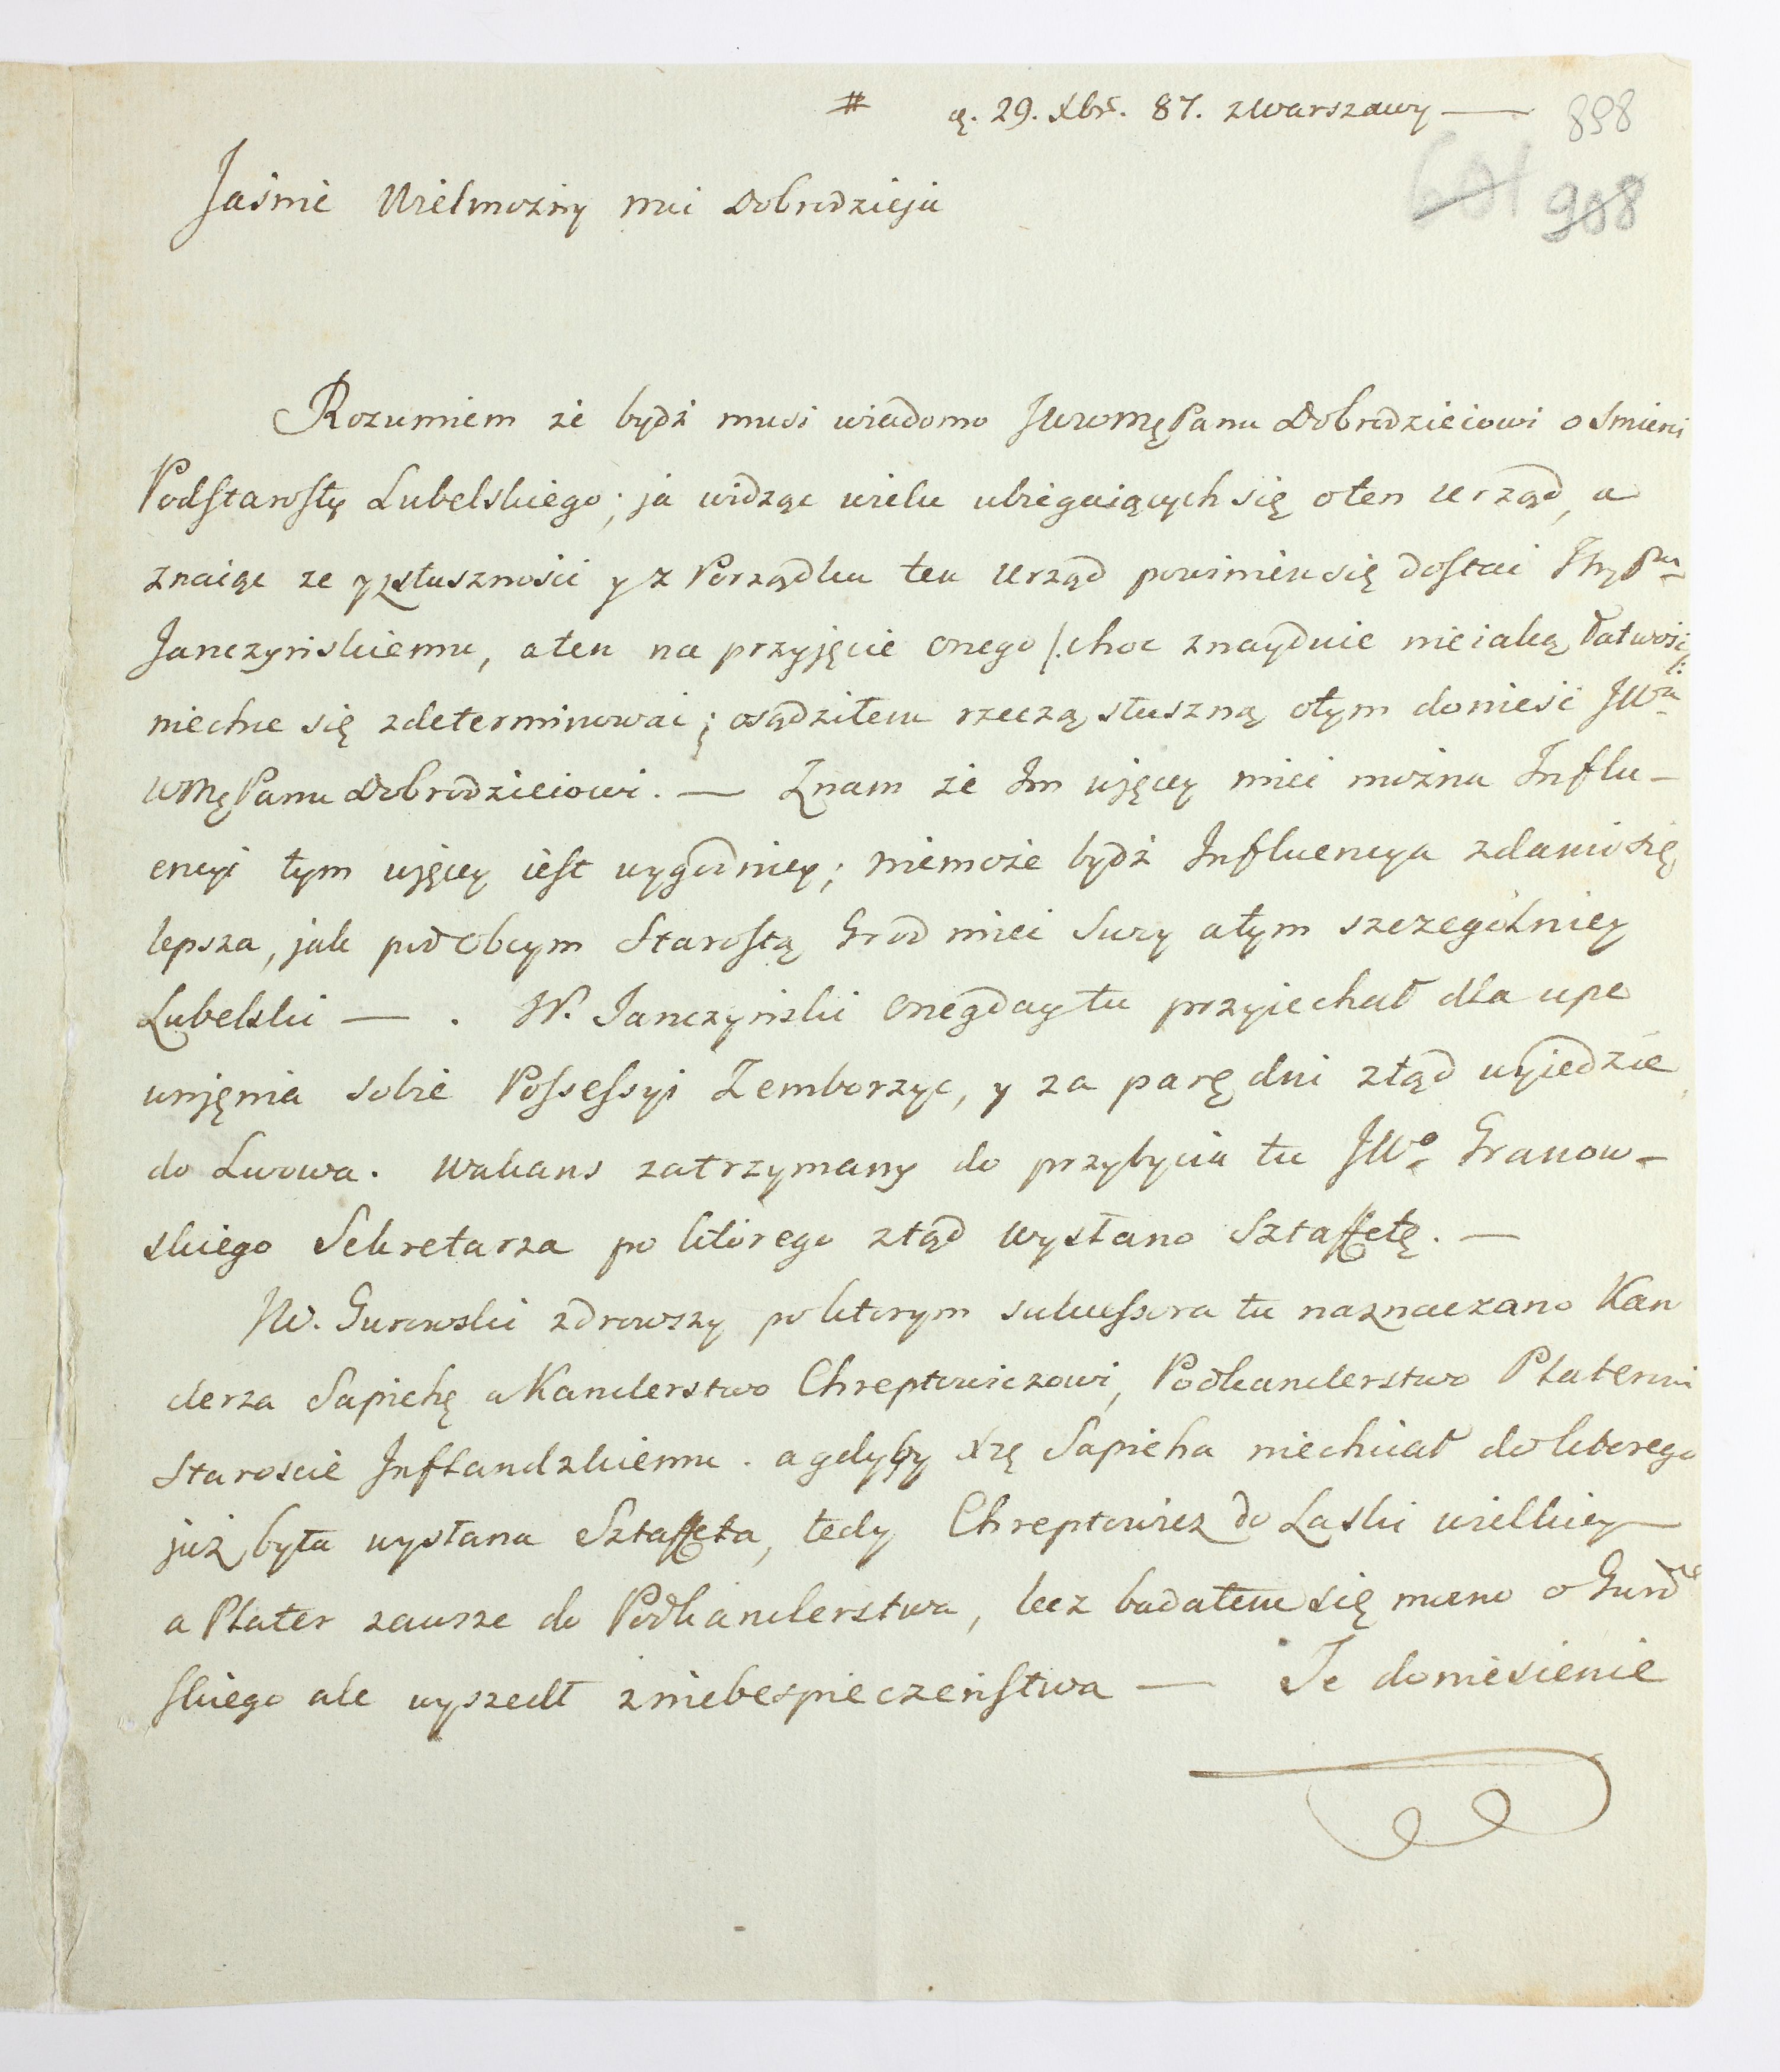 # d. 29. Xbr. 87. z Warszawy —
898
601 908
Jaśnie Wielmożny mci Dobrodzieju
Rozumiem że bydź musi wiadomo JWWMę Panu Dobrodzieiowi o śmierci
Podstarosty Lubelskiego; ja widząc wielu ubiegaiących się o ten Urząd, a
znaiąc ze y słuszności y z Porządku ten Urząd powinien się dostać
Janczyńskiemu, a ten na przyjęcie onego /: choc znayduie nieiaką łatwość :/
niechce się zdeterminować; osądziłem rzeczą słuszną o tym donieść JW
WMę Panu Dobrodzieiowi. — Znam że Im więcey mieć można Influ-
encyi tym więcey iest wygodniey; niemoże bydź Influencya zdamisię
lepsza, jak pod obcym Starostą Grod mieć Swoy a tym szczególniey
Lubelski — . W. Janczyński onegday tu przyiechał dla upe
wnienia sobie Possessyi Zemborzyc, y za parę dni ztąd wyiedzie
do Lwowa. Wakans zatrzymany do przybycia tu JWo Granow-
skiego Sekretarza po którego ztąd wysłano Sztaffetę. —
JW. Gurowski zdrowszy po ktorym sukcessora tu naznaczano Kan
clerza Sapiehę a Kanclerstwo Chreptowiczowi, Podkanclerstwo Platerowi
Staroscie Inflandzkiemu. a gdyby Xżę Sapieha niechciał do ktorego
już była wysłana Sztaffeta, tedy Chreptowicz do Laski wielkiey
a Plater zawsze do Podkanclerstwa, lecz badałem się mocno o Guro
skiego ale wyszedł z niebespieczeństwa — Te doniesienie